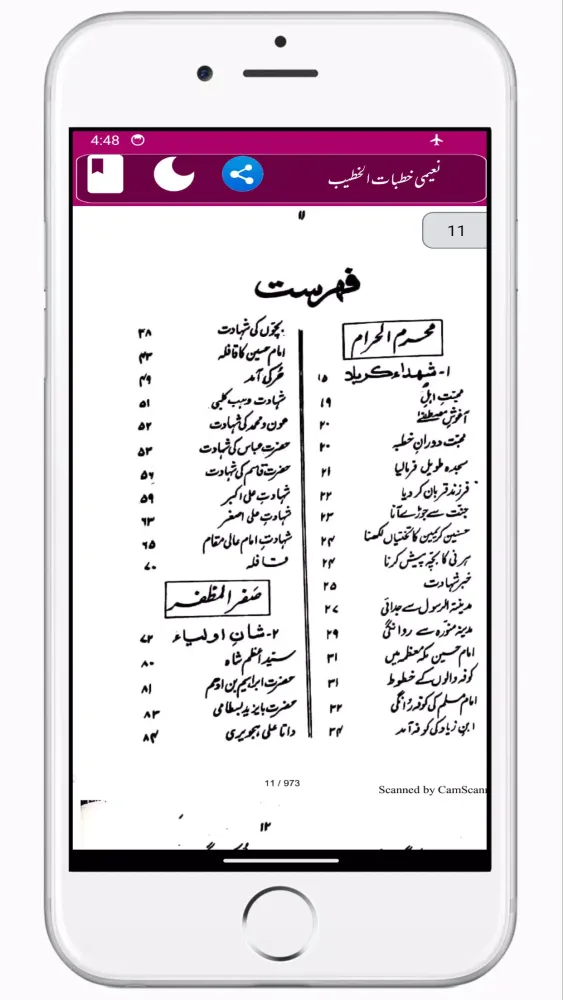 4:48
نعیمی خطبات الخطیب
۱۱
11
فہرست
محرم الحرام
۱- شہداء کربلا ۱۵
محبتِ اہلِ ۱۹
آغوشِ مصطفےٰ ۲۰
محبت دورانِ خطبہ ۲۰
سجدہ طویل فرمالیا ۲۱
فرزند قربان کر دیا ۲۲
جنت سے جوڑے آنا ۲۳
حسنین کریمین کا تختیاں لکھنا ۲۴
ہرنی کا بچہ پیش کرنا ۲۴
خبر شہادت ۲۵
مدینۃ الرسول سے جدائی ۲۷
مدینہ منورہ سے روانگی ۲۹
امام حسین مکہ معظمہ میں ۳۱
کوفہ والوں کے خطوط ۳۱
امام مسلم کی کوفہ روانگی ۳۲
ابنِ زیاد کی کوفہ آمد ۳۴
بچوں کی شہادت ۳۸
امام حسین کا قافلہ ۴۳
حُر کی آمد ۴۹
شہادت وہب کلبی ۵۱
عون و محمد کی شہادت ۵۲
حضرت عباس کی شہادت ۵۳
حضرت قاسم کی شہادت ۵۶
شہادتِ علی اکبر ۵۹
شہادتِ علی اصغر ۶۳
شہادتِ امام عالی مقام ۶۵
قافلہ ۷۰
صفر المظفر
۲- شانِ اولیاء ۷۲
سید اعظم شاہ ۸۰
حضرت ابراہیم بن ادہم ۸۱
حضرت بایزید بسطامی ۸۳
داتا علی ہجویری ۸۴
11 / 973
Scanned by CamScann
۱۲